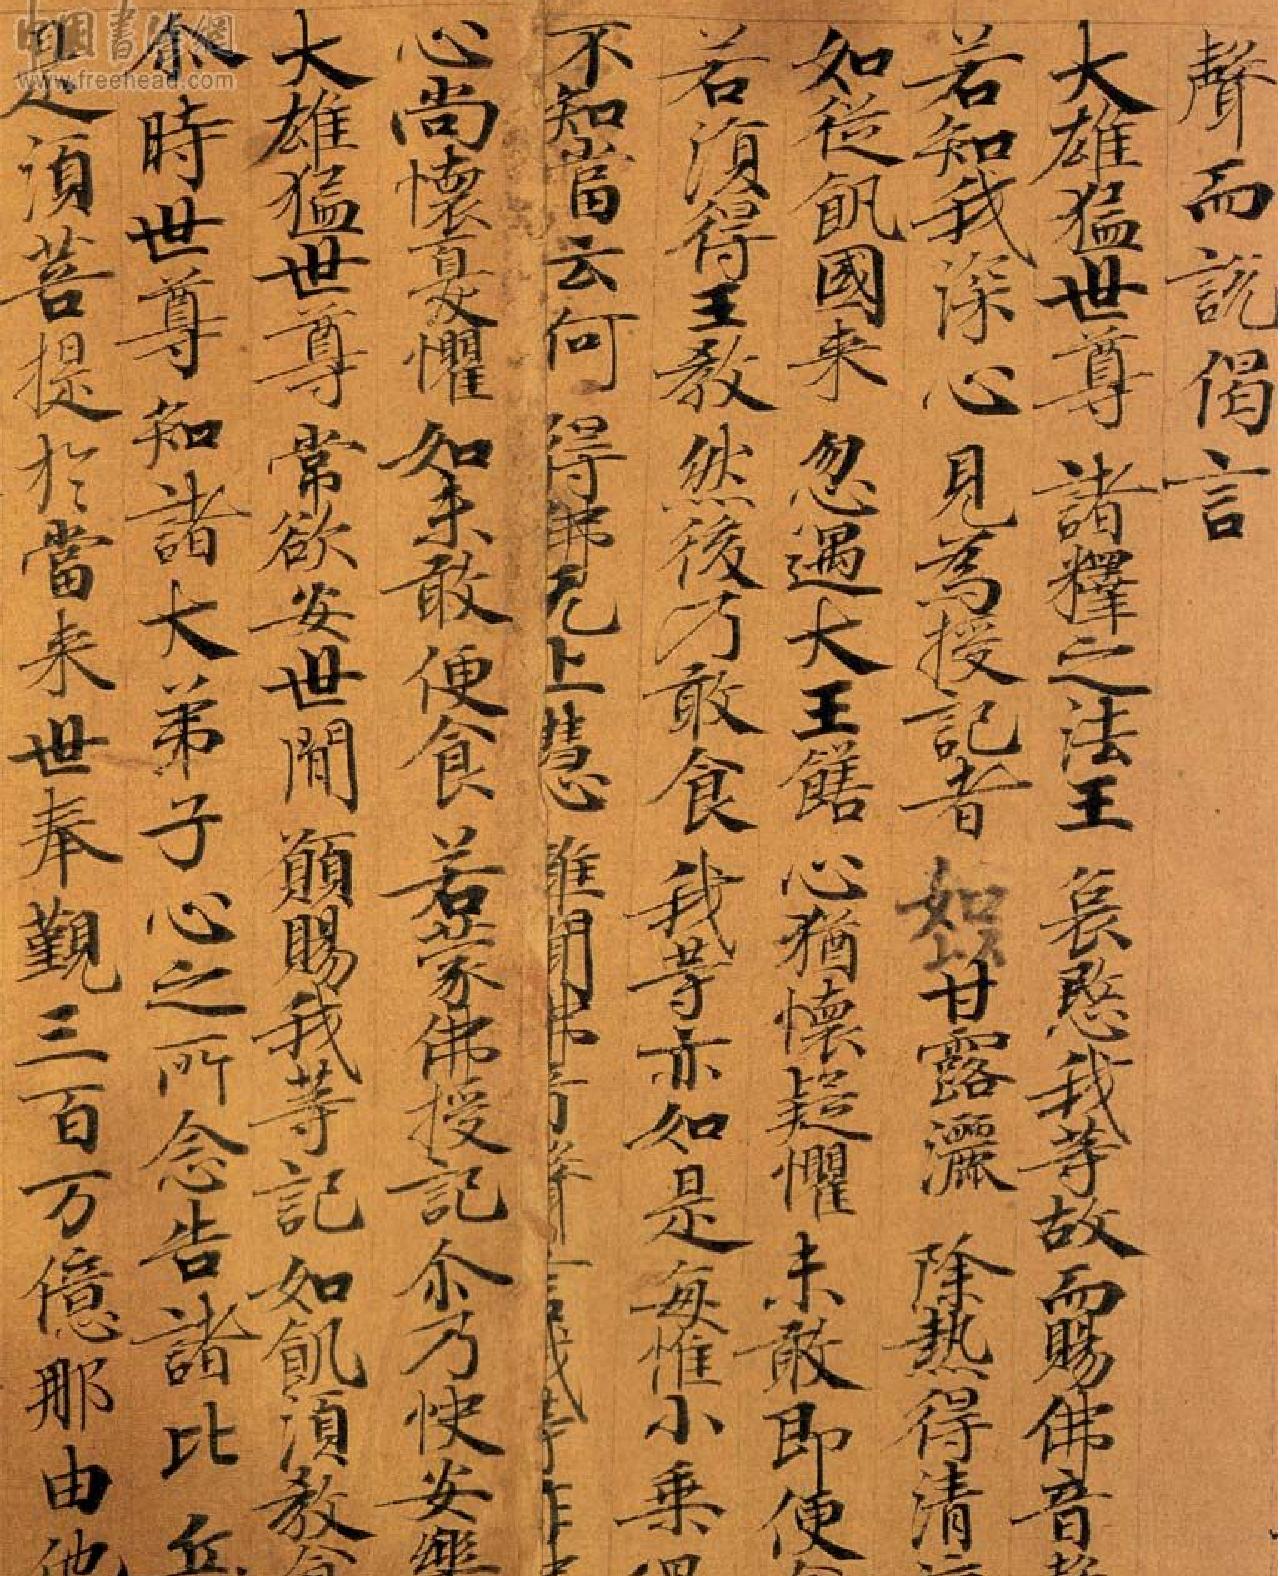 聲而說偈言
大雄猛世尊 諸釋之法王 哀愍我等故 而賜佛音
若知我深心 見為授記者 如以甘露灑 除熱得清
如從飢國来 忽遇大王饍 心猶懷疑懼 未敢即便
若須得王教 然後乃敢食 我等亦如是 每惟小乗
不知當云何 得佛无上慧 雖聞佛音聲 言我等作
心尚懷憂懼 如未敢便食 若蒙佛授記 尒乃快安樂
大雄猛世尊 常欲安世間 願賜我等記 如飢須教食
尒時世尊知諸大弟子心之所念告諸比丘
是須菩提於當来世奉覲三百万億那由他
www.freehead.com